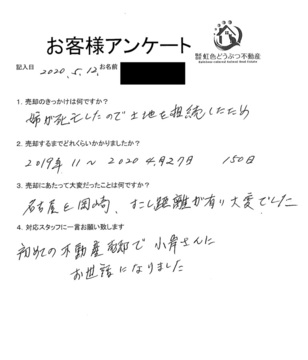 お客様アンケート
株式会社 虹色どうぶつ不動産
記入日 2020.5.12. お名前
1. 売却のきっかけは何ですか？
姉が死亡したので土地を相続したため
2. 売却するまでどれくらいかかりましたか？
2019年11〜2020 4月27日 150日
3. 売却にあたって大変だったことは何ですか？
名古屋と岡崎、すこし距離が有り大変でした
4. 対応スタッフに一言お願い致します
初めての不動産売却で小岸さんに
お世話になりました